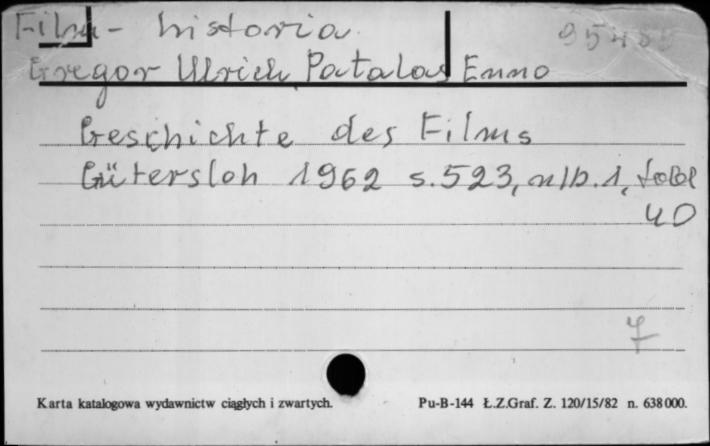 Film - historia
Gregor Ulrich, Patalas Enno
Geschichte des Films
Gütersloh 1962 s. 523, nlb. 1, tabl
40
Karta katalogowa wydawnictw ciągłych i zwartych. Pu-B-144 Ł.Z.Graf. Z. 120/15/82 n. 638 000.